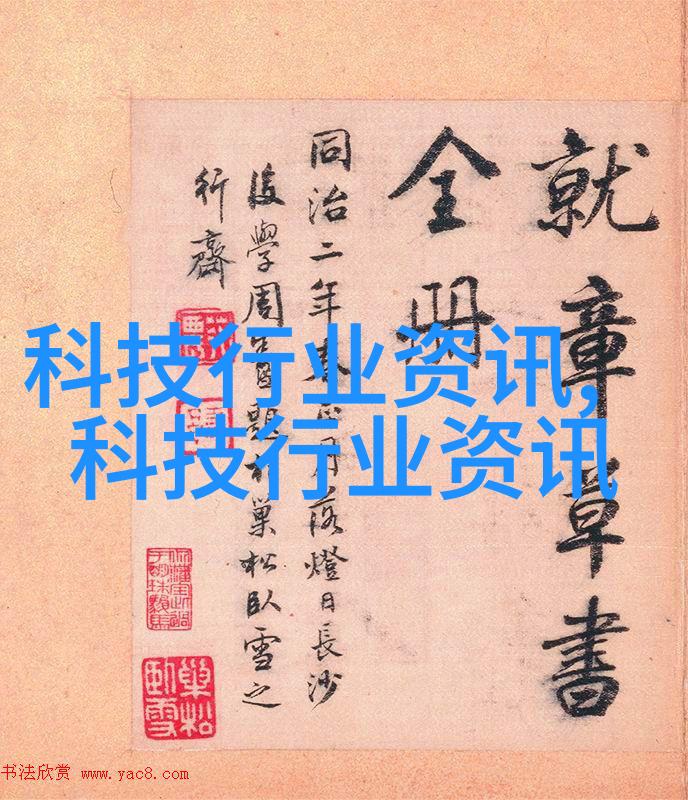 就章草書
全冊
同治二年春正月落燈日長沙
後學周題於巢松臥雪之
行齋
科技行业资讯,
科技行业资讯
巢松
臥雪
书法欣赏 www.yac8.com